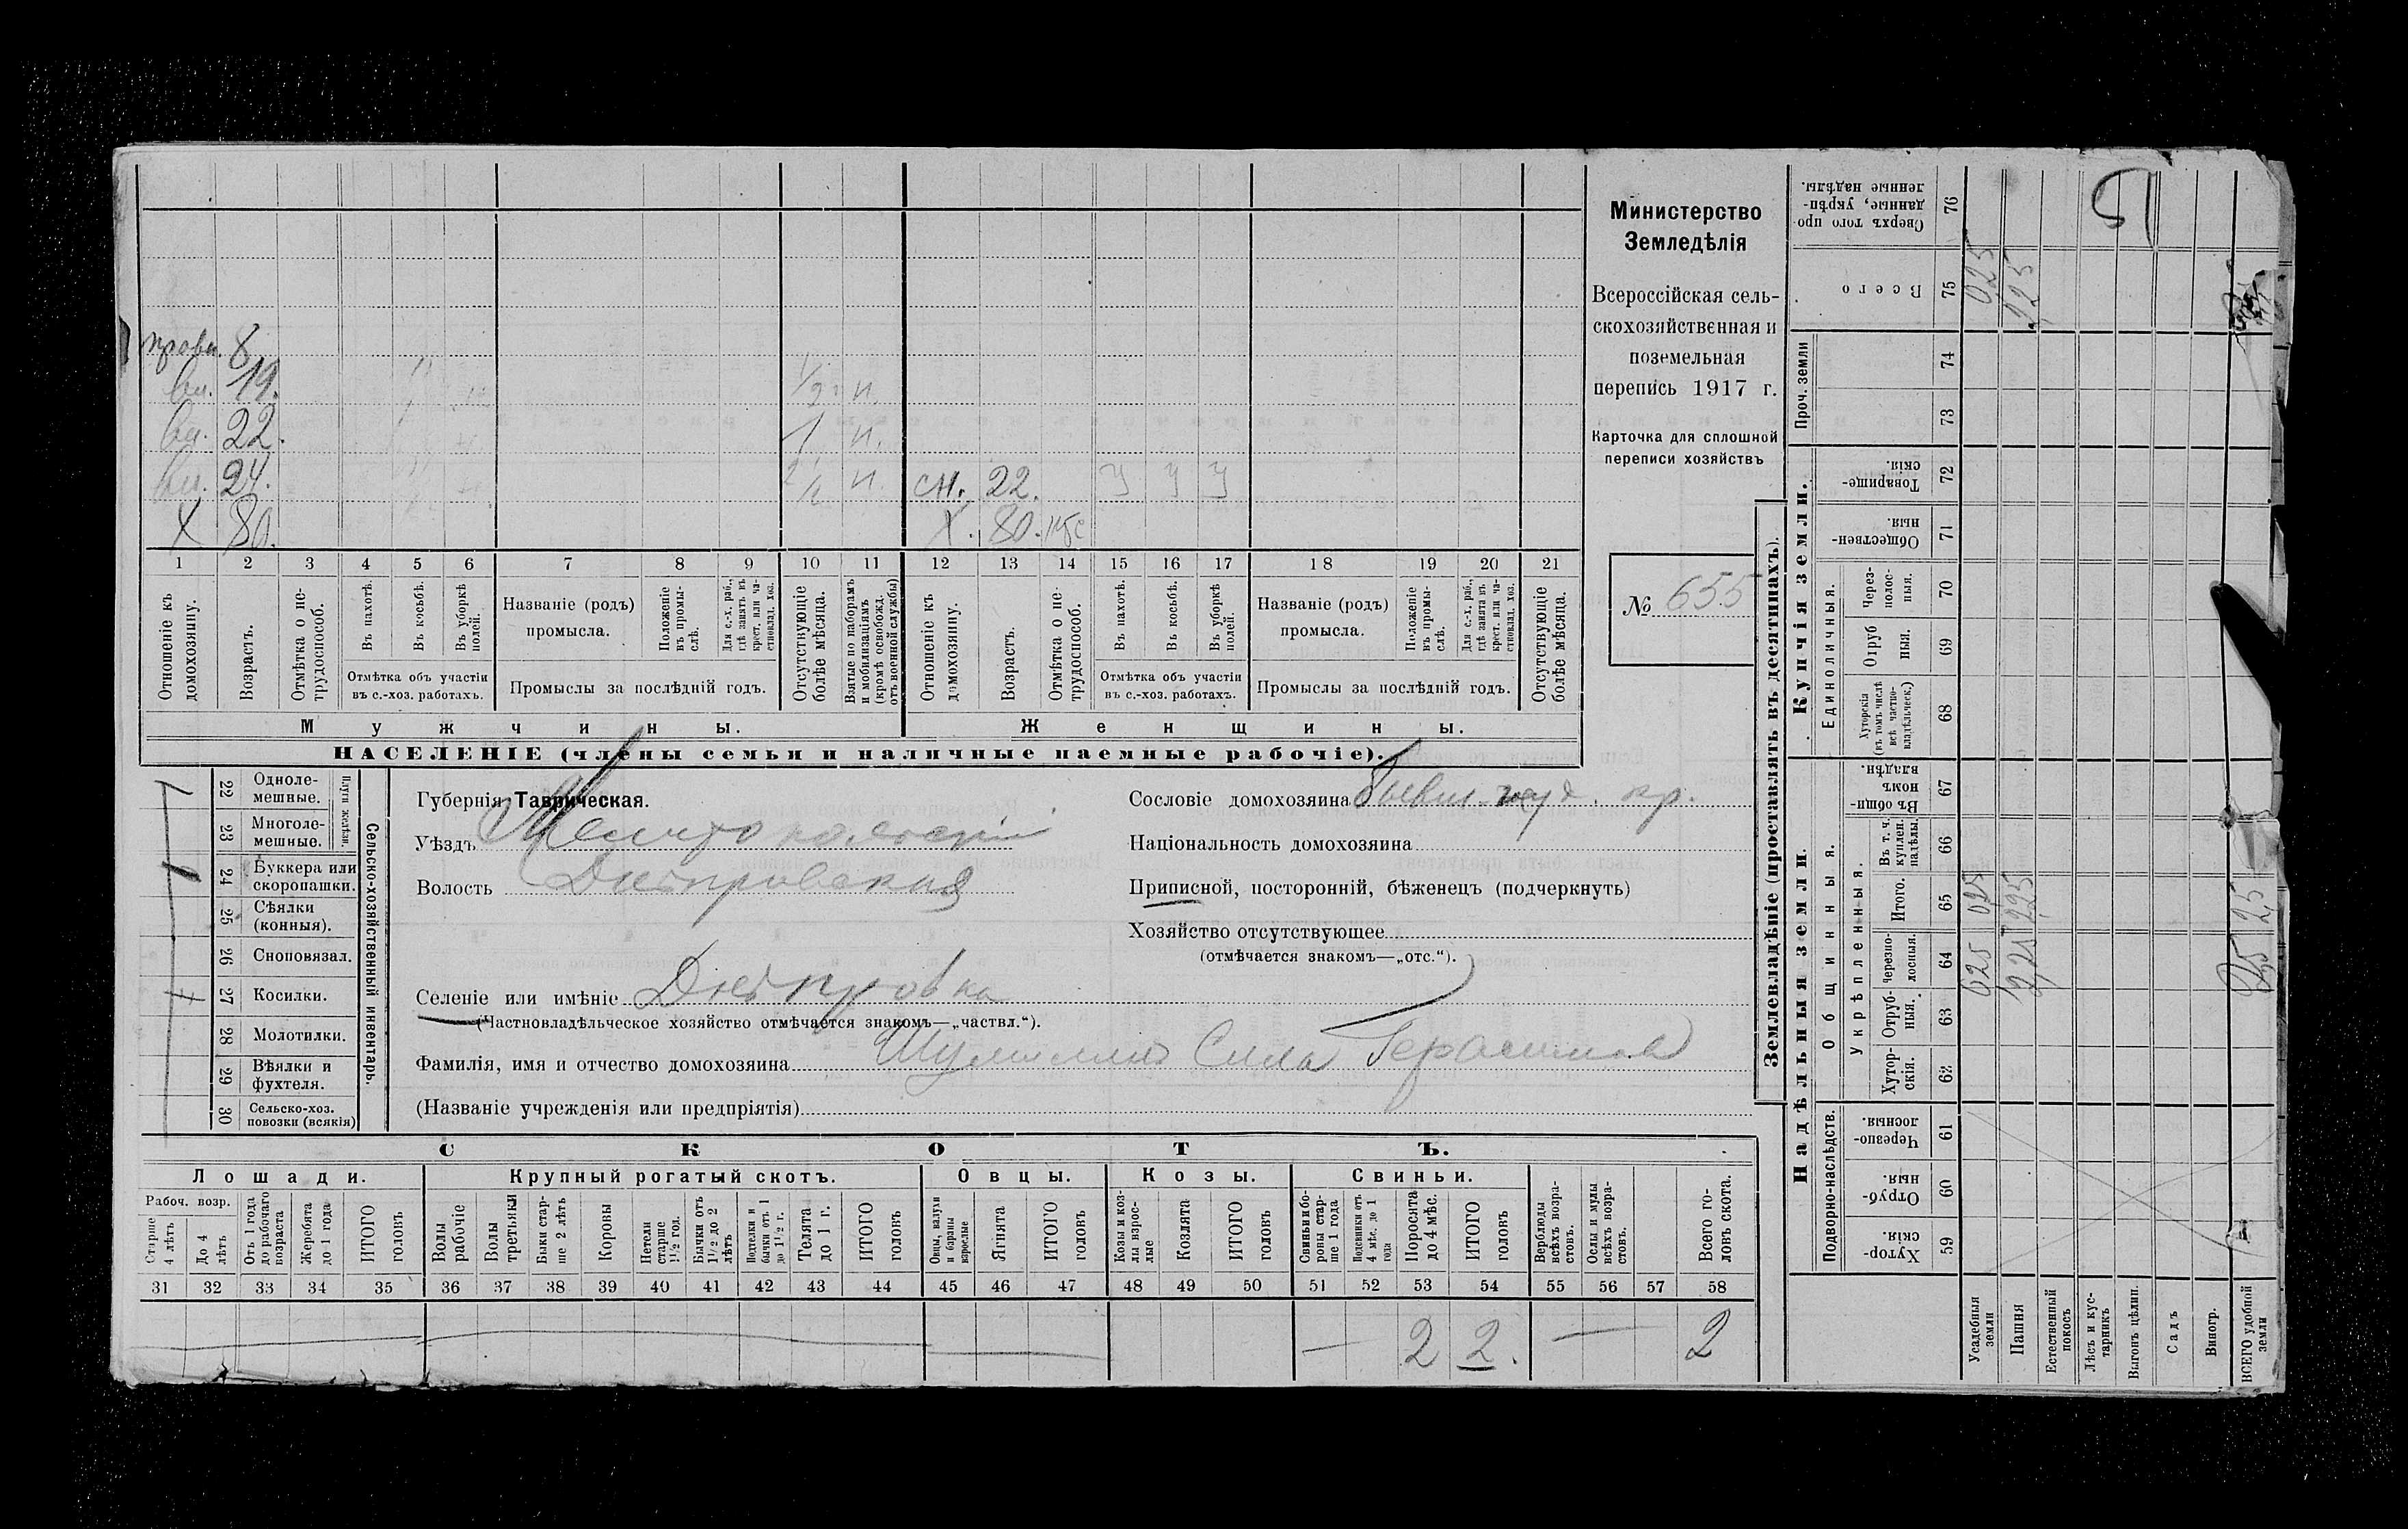 Министерство
Земледѣлія
Всероссійская сель-
скохозяйственная и
поземельная
перепись 1917 г.
Карточка для сплошной
переписи хозяйствъ
№ 655
8
вн. 19.
1/2 н.
вн. 22.
н.
вн. 24.
н.
сн. 22.
У У У
Х 80.
Х. 80.
1 2 3 4 5 6 7 8 9 10 11 12 13 14 15 16 17 18 19 20 21
Отношеніе къ домохозяину.
Возрастъ.
Отмѣтка о не-трудоспособ.
Въ пахотѣ.
Въ косьбѣ.
Въ уборкѣ полей.
Отмѣтка объ участіи
въ с.-хоз. работахъ.
Названіе (родъ)
промысла.
Положеніе въ промы-слѣ.
Для с.-х. раб., гдѣ занятъ въ крест. или ча-стновлад. хоз.
Промыслы за послѣдній годъ.
Отсутствующіе болѣе мѣсяца.
Взятые по наборамъ и мобилизаціямъ (кромѣ освобожд. отъ военной службы)
Отношеніе къ домохозяину.
Возрастъ.
Отмѣтка о не-трудоспособ.
Въ пахотѣ.
Въ косьбѣ.
Въ уборкѣ полей.
Отмѣтка объ участіи
въ с.-хоз. работахъ.
Названіе (родъ)
промысла.
Положеніе въ промы-слѣ.
Для с.-х. раб., гдѣ занята въ крест. или ча-стновлад. хоз.
Промыслы за послѣдній годъ.
Отсутствующіе болѣе мѣсяца.
Мужчины.
Женщины.
НАСЕЛЕНІЕ (члены семьи и наличные наемные рабочіе).
Сельско-хозяйственный инвентарь.
Плуги желѣзн.
22 Одноле-мешные.
23 Многоле-мешные.
24 Буккера или скоропашки.
25 Сѣялки (конныя).
26 Сноповязал.
27 Косилки.
28 Молотилки.
29 Вѣялки и фухтеля.
30 Сельско-хоз. повозки (всякія)
Губернія Таврическая.
Уѣздъ Мелитопольскій
Волость Днѣпровская
Селеніе или имѣніе Днѣпровка
(Частновладѣльческое хозяйство отмѣчается знакомъ—„частвл.“).
Фамилія, имя и отчество домохозяина Шумилинъ Сила Герасимов
(Названіе учрежденія или предпріятія)
Сословіе домохозяина бывш. кр.
Національность домохозяина
Приписной, посторонній, бѣженецъ (подчеркнуть)
Хозяйство отсутствующее
(отмѣчается знакомъ—„отс.“).
СКОТЪ.
Лошади.
Крупный рогатый скотъ.
Овцы.
Козы.
Свиньи.
Рабоч. возр.
Старше 4 лѣтъ
До 4 лѣтъ
Отъ 1 года до рабочаго возраста
Жеребята до 1 года
ИТОГО головъ
Волы рабочіе
Волы третьяки
Быки стар-ше 2 лѣтъ
Коровы
Нетели старше 1 1/2 год.
Бычки отъ 1 1/2 до 2 лѣтъ
Подтелки и бычки отъ 1 до 1 1/2 г.
Телята до 1 г.
ИТОГО головъ
Овцы, валухи и бараны взрослые
Ягнята
ИТОГО головъ
Козы и коз-лы взрос-лые
Козлята
ИТОГО головъ
Свиньи и бо-ровы стар-ше 1 года
Подсвинки отъ 4 мѣс. до 1 года
Поросята до 4 мѣс.
ИТОГО головъ
Верблюды всѣхъ возра-стовъ.
Ослы и мулы всѣхъ возра-стовъ.
Всего го-ловъ скота.
31 32 33 34 35 36 37 38 39 40 41 42 43 44 45 46 47 48 49 50 51 52 53 54 55 56 57 58
— 2 2. — 2
Землевладѣніе (проставлять въ десятинахъ).
Надѣльныя земли.
Купчія земли.
Проч. земли
Подворно-наслѣдств.
Общинныя.
Укрѣпленныя.
Единоличныя.
59 Хутор-скія.
60 Отруб-ныя.
61 Черезпо-лосныя.
62 Хутор-скія.
63 Отруб-ныя.
64 Черезпо-лосныя.
65 Итого.
66 Въ т. ч. куплен. надѣлы.
67 Въ общин-номъ владѣн.
68 Хуторскія (въ томъ числѣ всѣ частно-владѣльческ.)
69 Отруб ныя.
70 Через-полос-ныя.
71 Обществен-ныя.
72 Товарище-скія.
73
74
75 Всего
76 Сверхъ того про-данные, укрѣп-ленные надѣлы.
Усадебныя земли
025 025 025
Пашня
225 225 225
Естественный покосъ
Лѣсъ и кус-тарникъ
Выгонъ цѣлин.
Садъ
Виногр.
ВСЕГО удобной земли
2,5 2,5